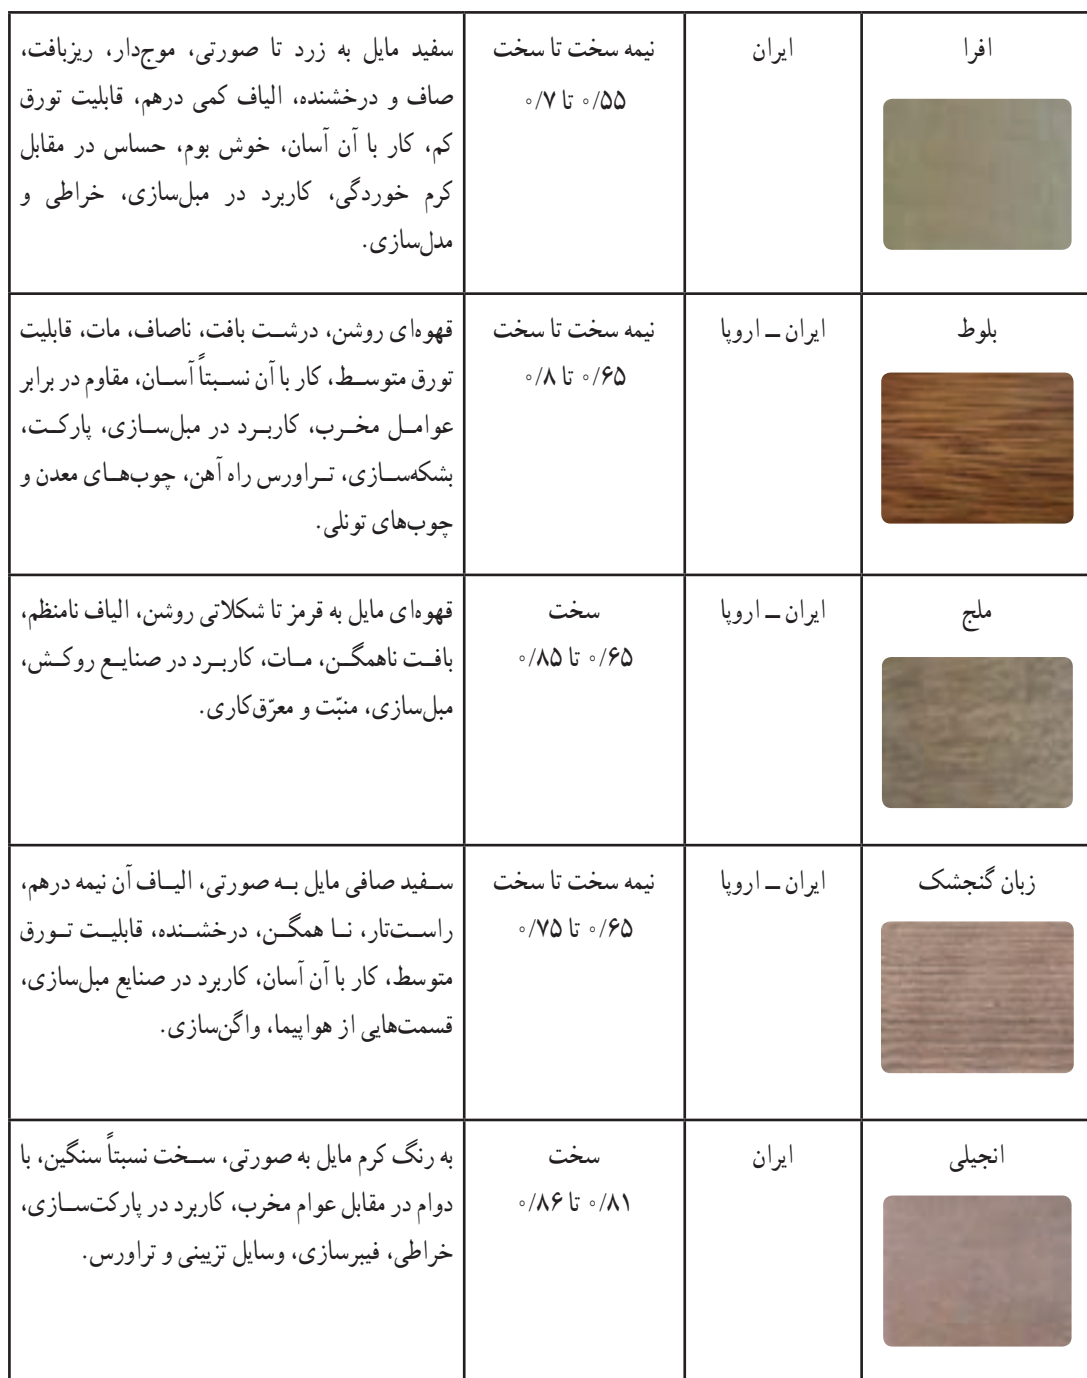 افرا
ایران
نیمه سخت تا سخت
۰/۵۵ تا ۰/۷
سفید مایل به زرد تا صورتی، موج‌دار، ریزبافت،
صاف و درخشنده، الیاف کمی درهم، قابلیت تورق
کم، کار با آن آسان، خوش بوم، حساس در مقابل
کرم خوردگی، کاربرد در مبل‌سازی، خراطی و
مدل‌سازی.
بلوط
ایران ــ اروپا
نیمه سخت تا سخت
۰/۶۵ تا ۰/۸
قهوه‌ای روشن، درشت بافت، ناصاف، مات، قابلیت
تورق متوسط، کار با آن نسبتاً آسان، مقاوم در برابر
عوامل مخرب، کاربرد در مبل‌سازی، پارکت،
بشکه‌سازی، تراورس راه آهن، چوب‌های معدن و
چوب‌های تونلی.
ملج
ایران ــ اروپا
سخت
۰/۶۵ تا ۰/۸۵
قهوه‌ای مایل به قرمز تا شکلاتی روشن، الیاف نامنظم،
بافت ناهمگن، مات، کاربرد در صنایع روکش،
مبل‌سازی، منبّت و معرّق‌کاری.
زبان گنجشک
ایران ــ اروپا
نیمه سخت تا سخت
۰/۶۵ تا ۰/۷۵
سفید صافی مایل به صورتی، الیاف آن نیمه درهم،
راست‌تار، نا همگن، درخشنده، قابلیت تورق
متوسط، کار با آن آسان، کاربرد در صنایع مبل‌سازی،
قسمت‌هایی از هواپیما، واگن‌سازی.
انجیلی
ایران
سخت
۰/۸۱ تا ۰/۸۶
به رنگ کرم مایل به صورتی، سخت نسبتاً سنگین، با
دوام در مقابل عوام مخرب، کاربرد در پارکت‌سازی،
خراطی، فیبرسازی، وسایل تزیینی و تراورس.